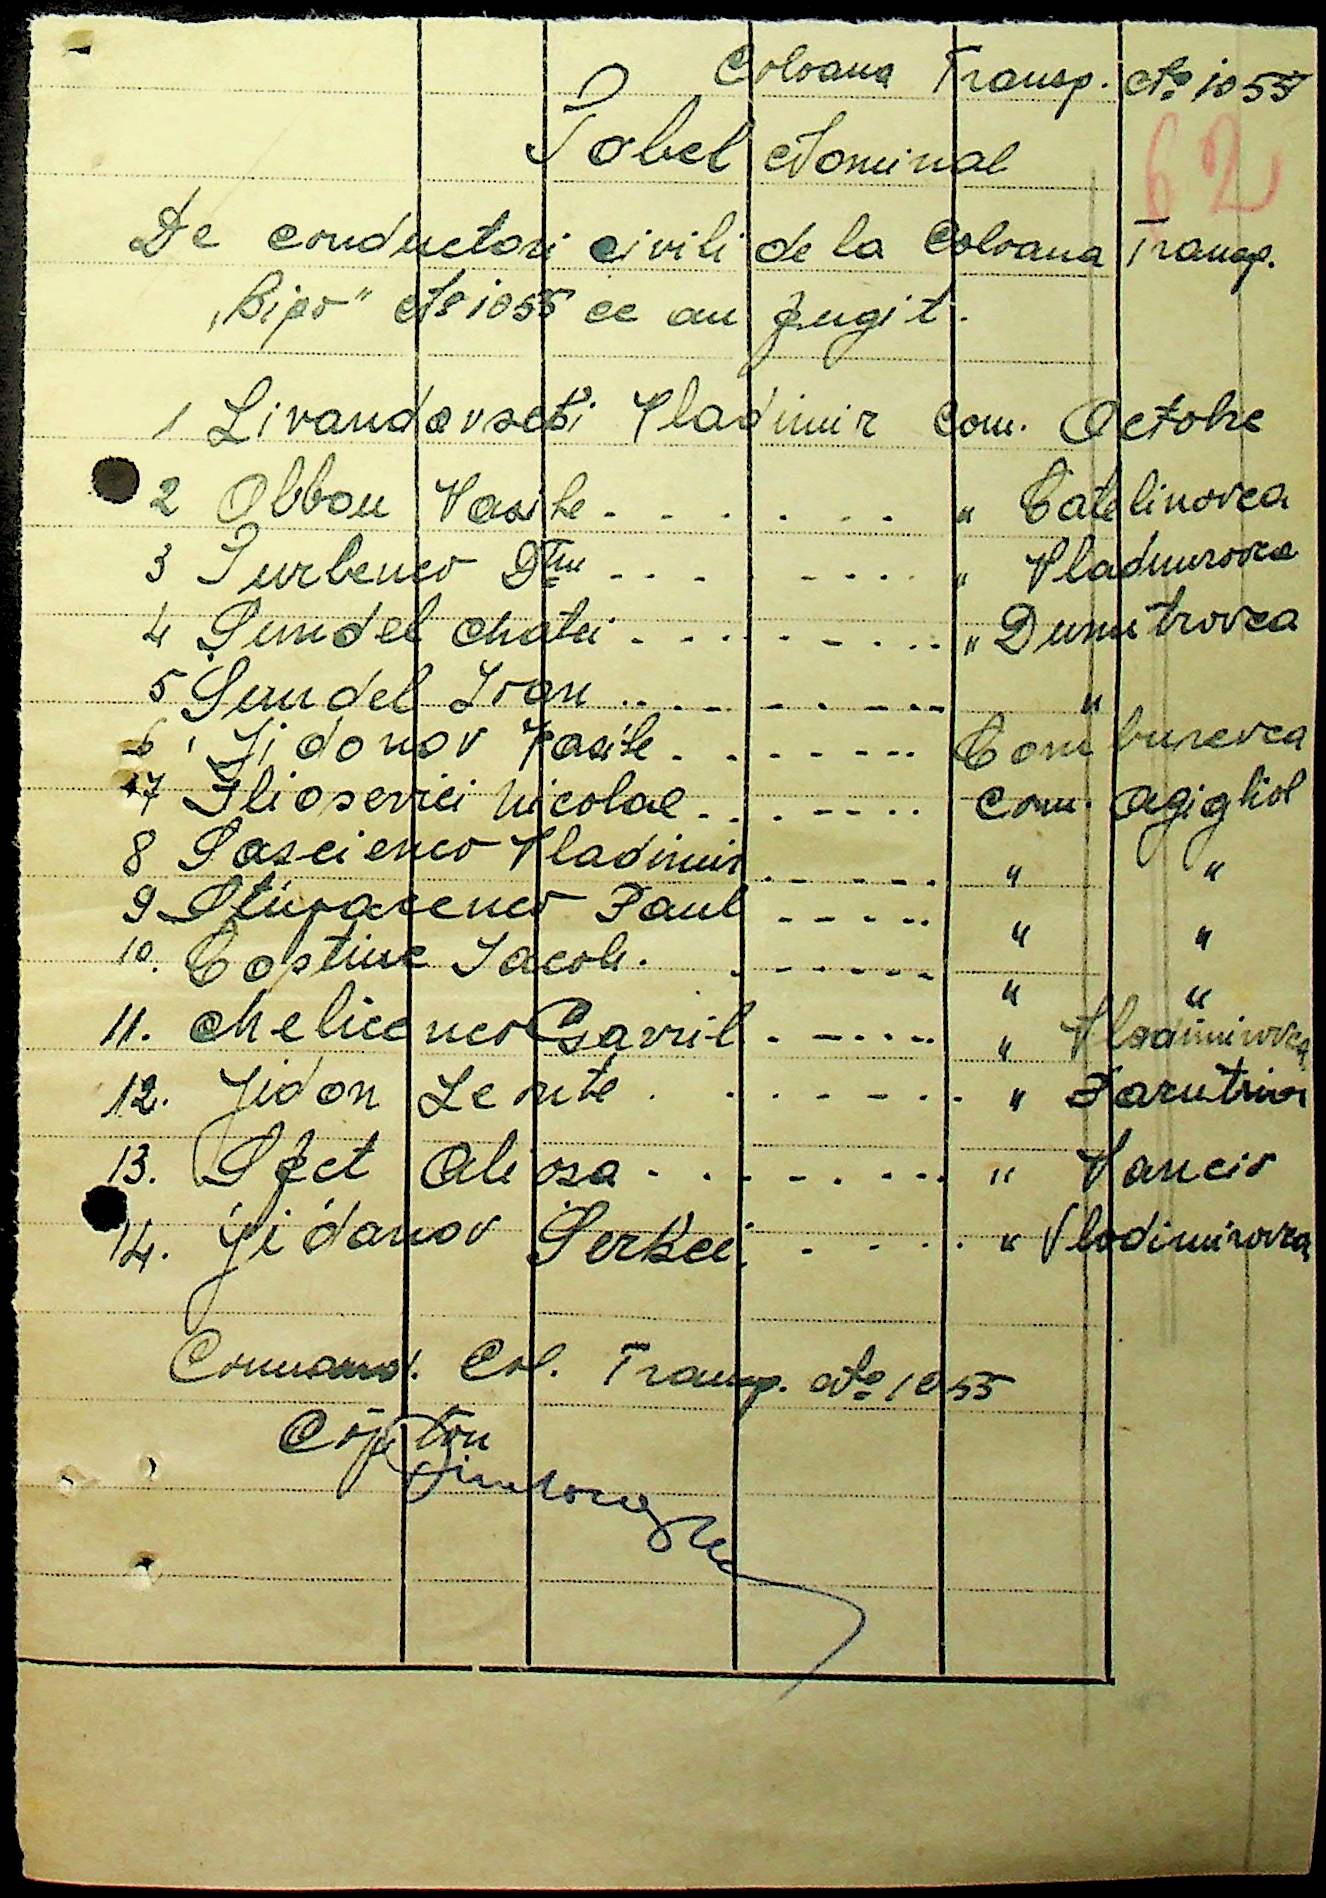 Coloana Transp. No 1055
62
Tabel Nominal
De conductori civili de la Coloana Transp.
„Hipo" No 1055 ce au fugit.
1 Livandovschi Vladimir Com. Octobre
2 Obbou Vasile - - - - - - " Catelinovca
3 Turbenco Dtru - - - - - - - - " Vladimirovca
4 Sendel Matei - - - - - - - - " Dumitrovca
5 Sendel Ivan - - - - - - - - "
6 Jidonov Vasile - - - - - - -
7 Ilioserici Nicolae - - - - - - - Com. Agighiol
8 Sascienco Vladimir - - - - - - " "
9 Sturacenco Paul - - - - - " "
10. Costine Iacob. - - - - - - " "
11. Melicenco Gavril - - - - - " Vladimirovca
12. Jidon - - - - - - - - " Tarutino
13. Sfet Aliosa - - - - - - - - " Vancio
14. Jidanov Serkei - - - - - " Vlodimirovca
Comand. Col. Transp. No 1055
Căpitan